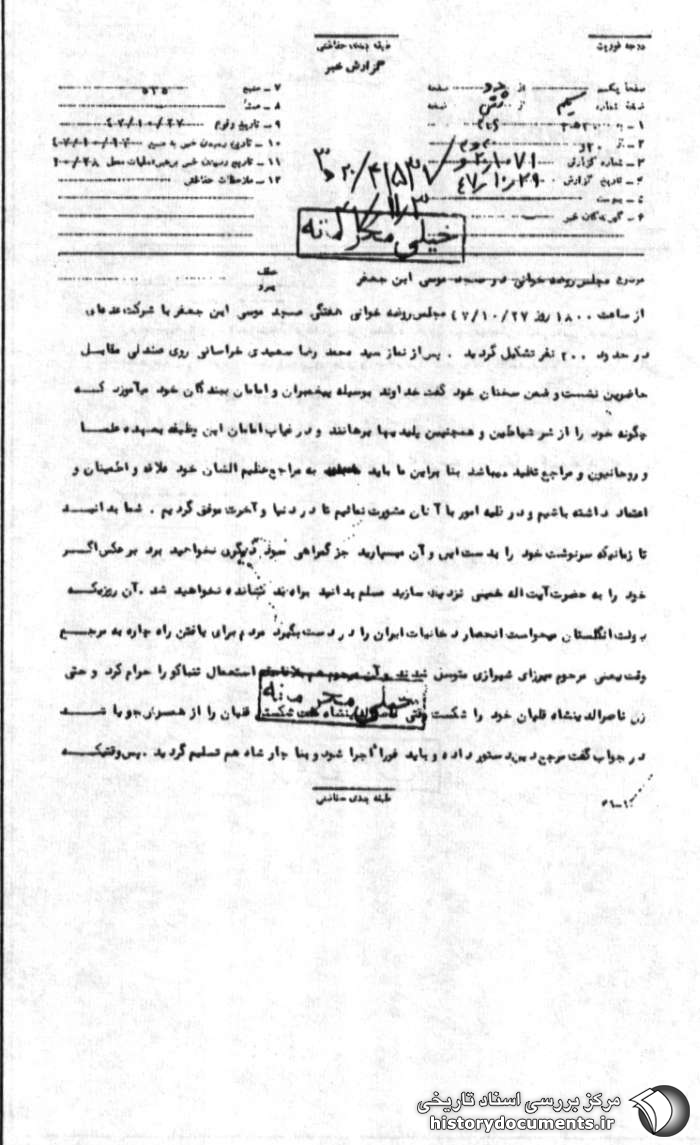 درجه فوریت
طبقه بندی حفاظتی
گزارش خبر
صفحه یکم از دو صفحه
نسخه شماره یکم از شش نسخه
۱ - به ۳۴۵
۲ - از ۲۰و
۳ - شماره گزارش ۲۰۱۰۷۱/و
۴ - تاریخ گزارش ۴۷/۱۰/۲۹
۵ - پیوست
۶ - گیرندگان خبر
۷ - منبع ۵۳۵
۸ - منشأ
۹ - تاریخ وقوع ۴۷/۱۰/۲۷
۱۰ - تاریخ رسیدن خبر به منبع ۴۷/۱۰/۲۷
۱۱ - تاریخ رسیدن خبر به رهبر عملیات محل ۱۰/۲۸
۱۲ - ملاحظات حفاظتی
خیلی محرمانه
موضوع مجلس روضه خوانی در مسجد موسی ابن جعفر
عطف
پیرو
از ساعت ۱۸۰۰ روز ۴۷/۱۰/۲۷ مجلس روضه خوانی هفتگی مسجد موسی ابن جعفر با شرکت عده‌ای
در حدود ۲۰۰ نفر تشکیل گردید . پس از نماز سید محمد رضا سعیدی خراسانی روی صندلی مقابل
حاضرین نشست و ضمن سخنان خود گفت خداوند بوسیله پیغمبران و امامان ببندگان خود میآموزد که
چگونه خود را از شر شیاطین و همچنین پلیدیها برهانند و در غیاب امامان این وظیفه بعهده علما
و روحانیون و مراجع تقلید میباشد بنا براین ما باید به مراجع عظیم الشان خود علاقه و اطمینان و
اعتماد داشته باشیم و در کلیه امور با آنان مشورت نمائیم تا در دنیا و آخرت موفق گردیم . شما بدانید
تا زمانیکه سرنوشت خود را بدست این و آن میسپارید جز گمراهی سود دیگری نخواهید برد برعکس اگر
خود را به حضرت آیت اله خمینی نزدیک سازید مسلم بدانید براه بد کشانده نخواهید شد . آن روزیکه
دولت انگلستان میخواست انحصار دخانیات ایران را در دست بگیرد مردم برای یافتن راه چاره به مرجع
وقت یعنی مرحوم میرزای شیرازی متوسل شدند و آن مرحوم هم بلافاصله استعمال تنباکو را حرام کرد و حتی
زن ناصرالدینشاه قلیان خود را شکست وقتی ناصرالدینشاه علت شکست قلیان را از همسرش جویا شد
در جواب گفت مرجع دین دستور داده و باید فوراً اجرا شود و بنا چار شاه هم تسلیم گردید . پس وقتیکه
خیلی محرمانه
طبقه بندی حفاظتی
مرکز بررسی اسناد تاریخی
historydocuments.ir